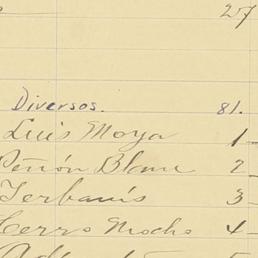 27
Diversos. 81.
Luis Moya 1
Peñón Blanco 2
3
Cerro Mocho 4